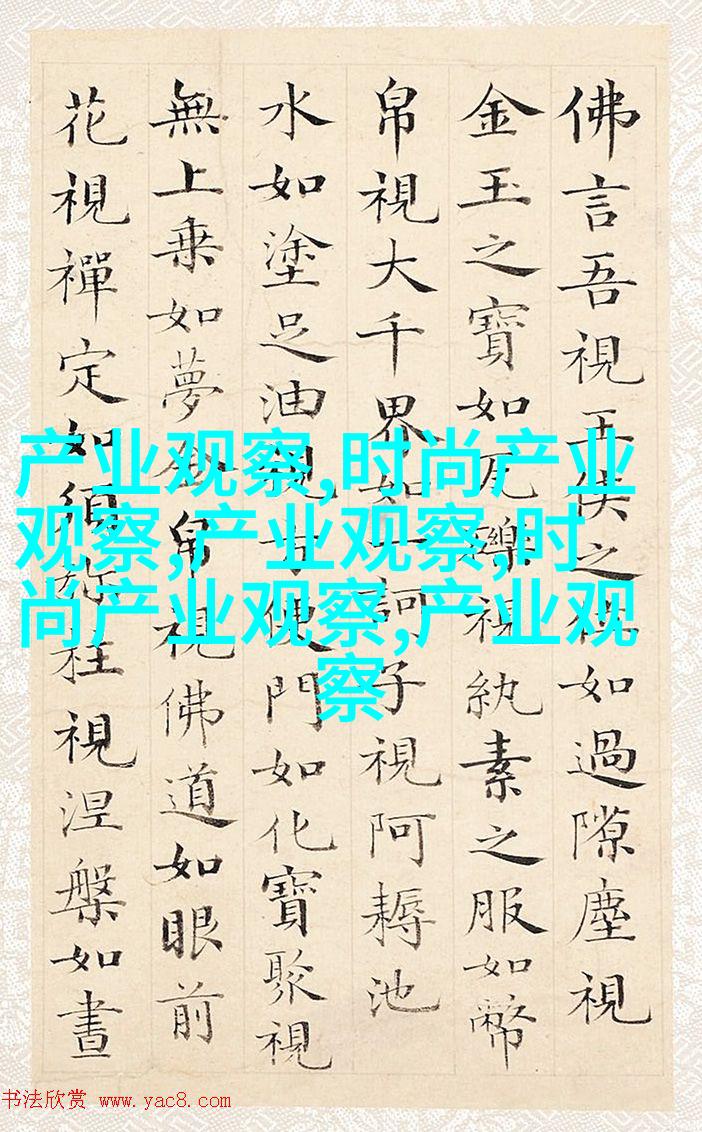 佛言吾視王侯之如過隙塵視
金玉之寶如瓦礫視紈素之服如幣
帛視大千界如一訶子視阿耨池
水如塗足油視方便門如化寶聚視
無上乗如夢金帛視佛道如眼前
花視禪定如須弥柱視涅槃如晝
产业观察,时尚产业
观察,产业观察,时
尚产业观察,产业观
察
书法欣赏 www.yac8.com